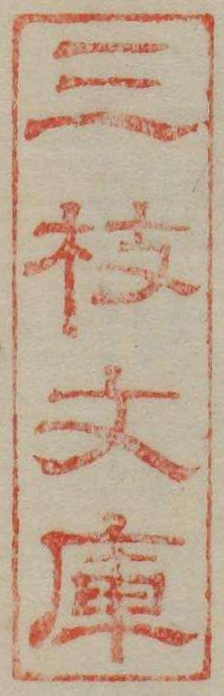 三枝文庫